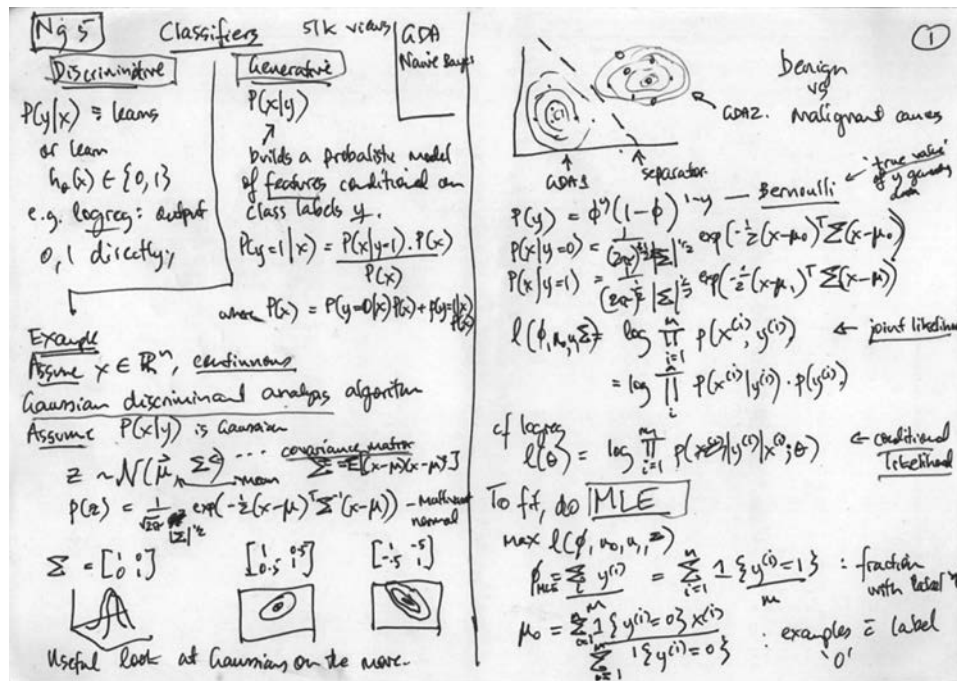 Ng 5
Classifiers 51k views
GDA
Naive Bayes
Discriminitive
P(y|x) ≡ learns
or learn
h_θ(x) ∈ {0,1}
e.g. logreg: output
0,1 directly,
Generative
P(x|y)
builds a probalistic model
of features conditional on
class labels y.
P(y=1|x) = P(x|y=1).P(x) / P(x)
where P(x) = P(y=0|x)P(x) + P(y=1|x) P(x)
Example
Assume x ∈ ℝⁿ, continuous
Gaussian discriminant analysis algorithm
Assume P(x|y) is Gaussian
covariance matrix
z ~ N(μ⃗, Σ) ... Σ = E[(x-μ)(x-μ)ᵀ]
mean
p(z) = 1/(√2π |Σ|^1/2) exp(-½(x-μ)ᵀ Σ⁻¹(x-μ)) —
normal
Σ = [1 0; 0 1] [1 0.5; 0.5 1] [1 -.5; -.5 1]
Useful look at Gaussians on the move.
1
Benign
vs
Malignant
GDA2.
GDA1
separator.
P(y) = φ^y (1-φ)^(1-y) — Bernoulli
"true value"
of y
P(x|y=0) = 1/((2π)^n/2 |Σ|^1/2) exp(-½(x-μ₀)ᵀ Σ(x-μ₀)
P(x|y=1) = 1/((2π)^½ |Σ|^½) exp(-½(x-μ₁)ᵀ Σ(x-μ)ᵀ
l(φ,μ₀,μ,Σ) = log ∏_{i=1}^m p(x^(i), y^(i)) ← joint likelihood
= log ∏_i p(x^(i)|y^(i)) . p(y^(i))
cf logreg
l(θ) = log ∏_{i=1}^m p(y^(i)|x^(i);θ) ← conditional
likelihood
To fit, do MLE
max l(φ,μ₀,μ₁,Σ)
φ_MLE = Σ_i y^(i) / m = Σ_{i=1}^m 1{y^(i)=1} / m : fraction
with label
μ₀ = Σ_{i=1}^m 1{y^(i)=0} x^(i) / Σ_{i=1}^m 1{y^(i)=0} : examples c̄ label
'0'